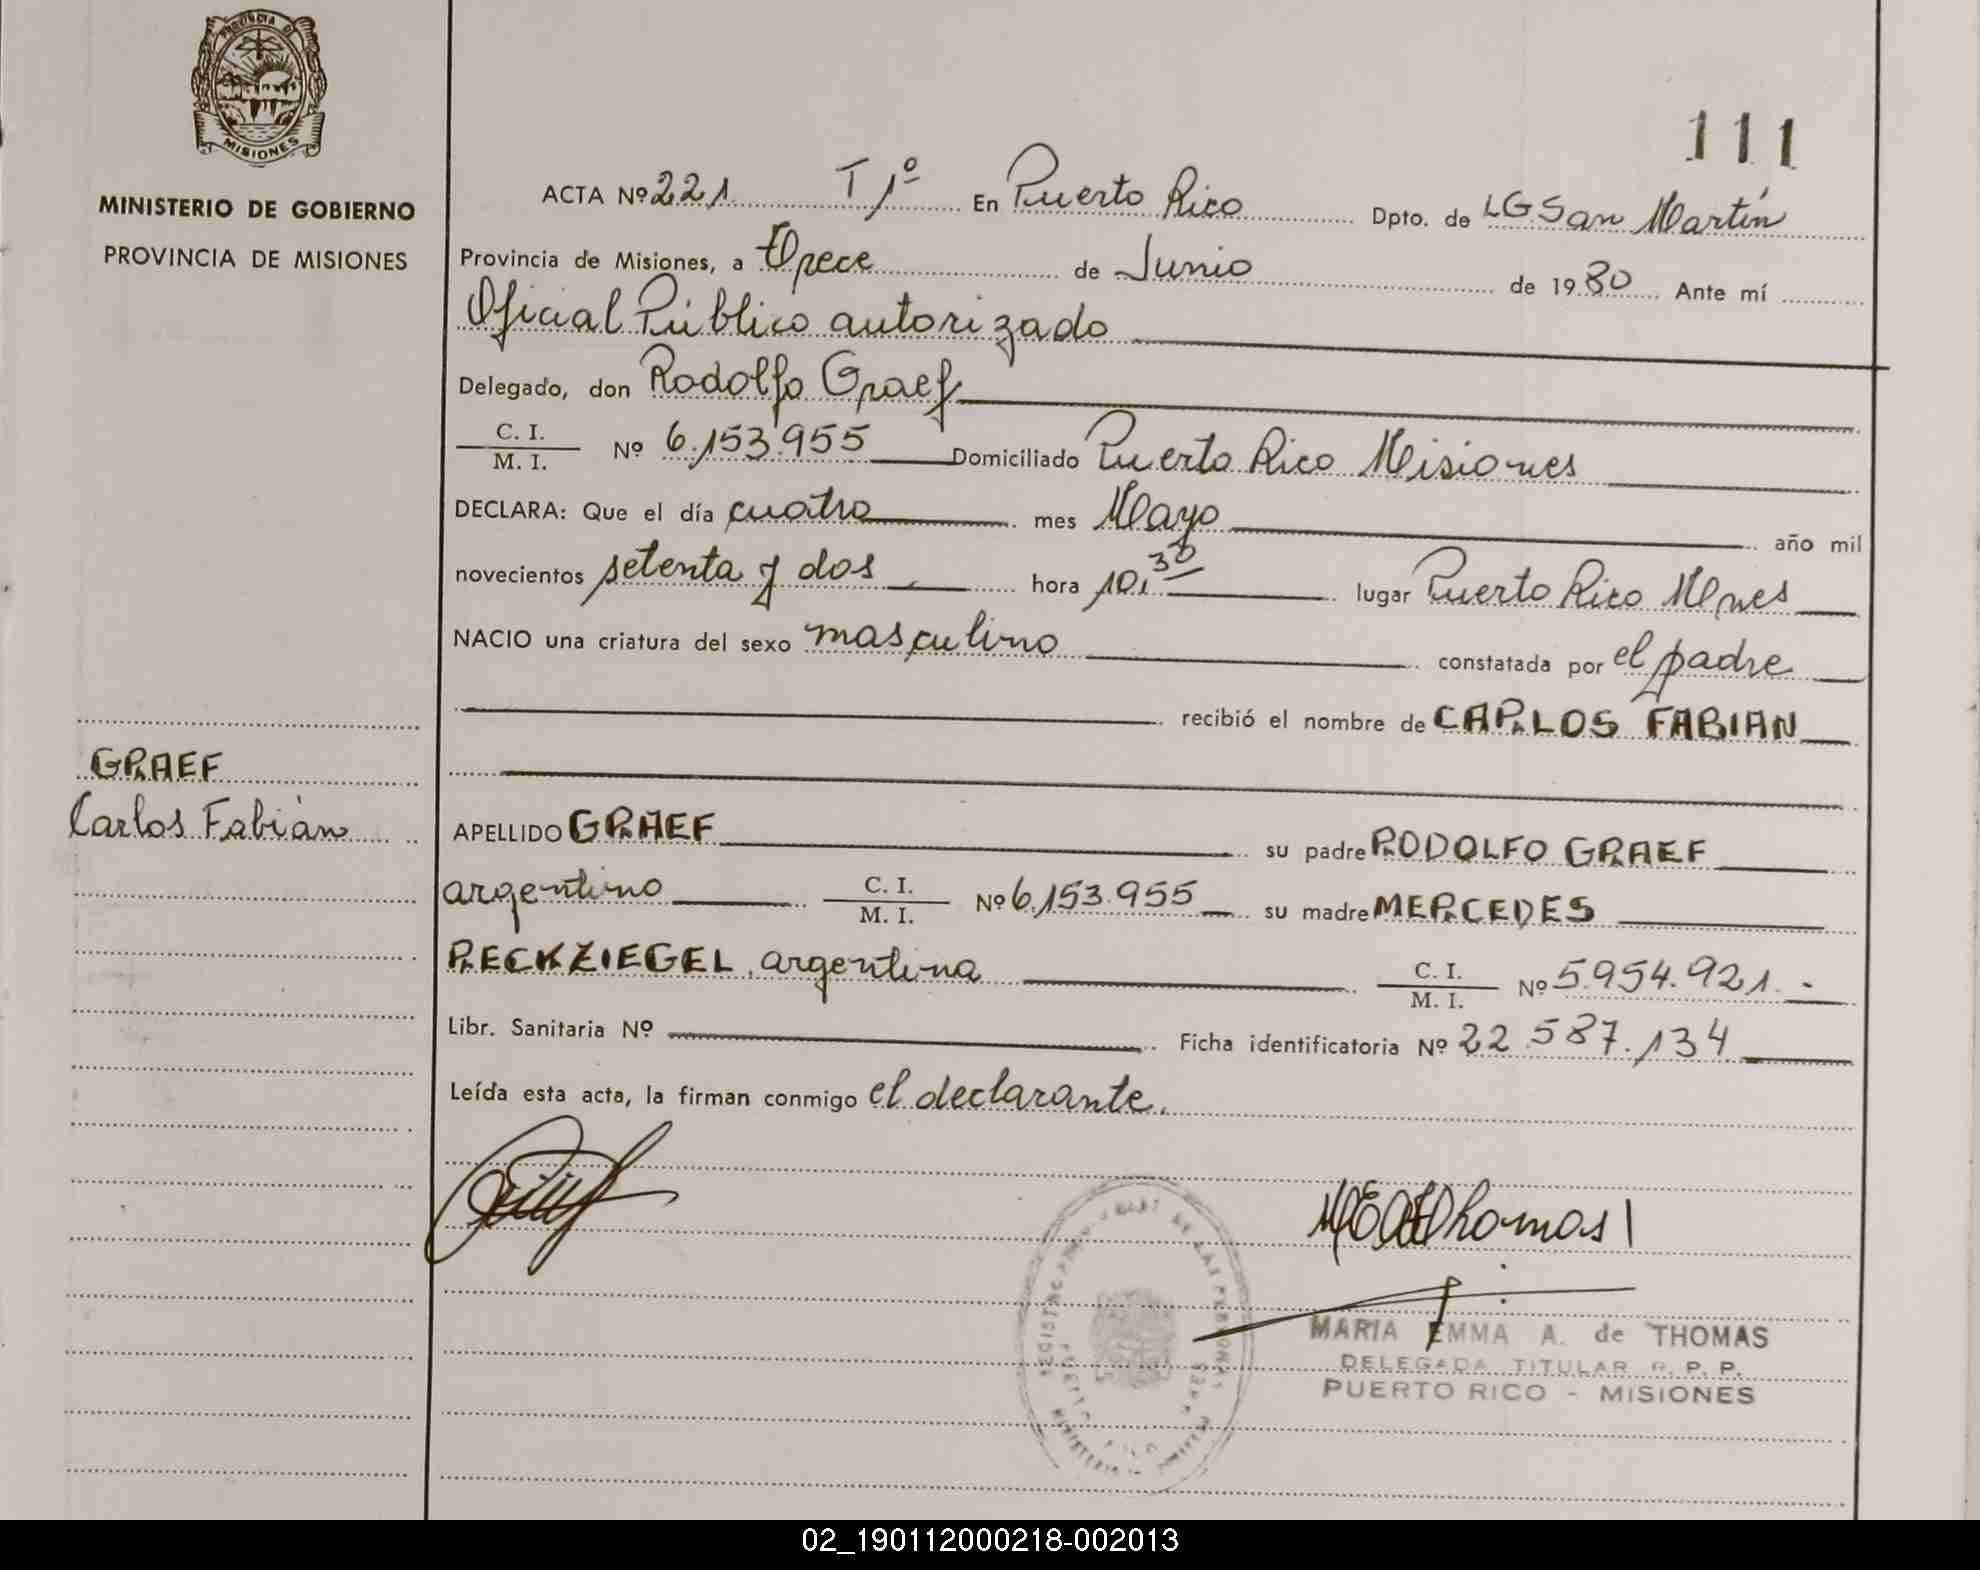 PROVINCIA DE
MISIONES
MINISTERIO DE GOBIERNO
PROVINCIA DE MISIONES
111
ACTA Nº 221 T 1º En Puerto Rico Dpto. de LG San Martín
Provincia de Misiones, a Trece de Junio de 1980 Ante mí
Oficial Público autorizado
Delegado, don Rodolfo Graef
C. I. / M. I. Nº 6.153.955 Domiciliado Puerto Rico Misiones
DECLARA: Que el día cuatro mes Mayo año mil
novecientos setenta y dos hora 10,30 lugar Puerto Rico Mnes
NACIO una criatura del sexo masculino constatada por el padre
recibió el nombre de CARLOS FABIAN
GRAEF
Carlos Fabián
APELLIDO GRAEF su padre RODOLFO GRAEF
argentino C. I. / M. I. Nº 6.153.955 su madre MERCEDES
RECKZIEGEL, argentina C. I. / M. I. Nº 5.954.921.-
Libr. Sanitaria Nº Ficha identificatoria Nº 22.587.134
Leída esta acta, la firman conmigo el declarante.
MEAdThomas
MARIA EMMA A. de THOMAS
DELEGADA TITULAR R. P. P.
PUERTO RICO - MISIONES
02_190112000218-002013